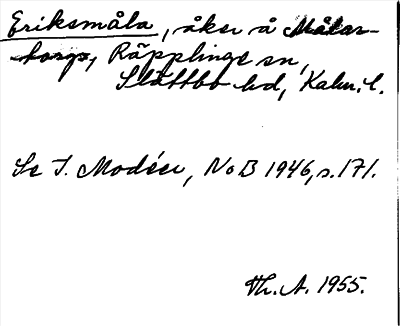 Eriksmåla, åker å Målar-
borgs, Räpplinge sn,
Slättbo hd, Kalm. l.
Se I. Modéer, NoB 1946, s. 171.
Th. A. 1955.